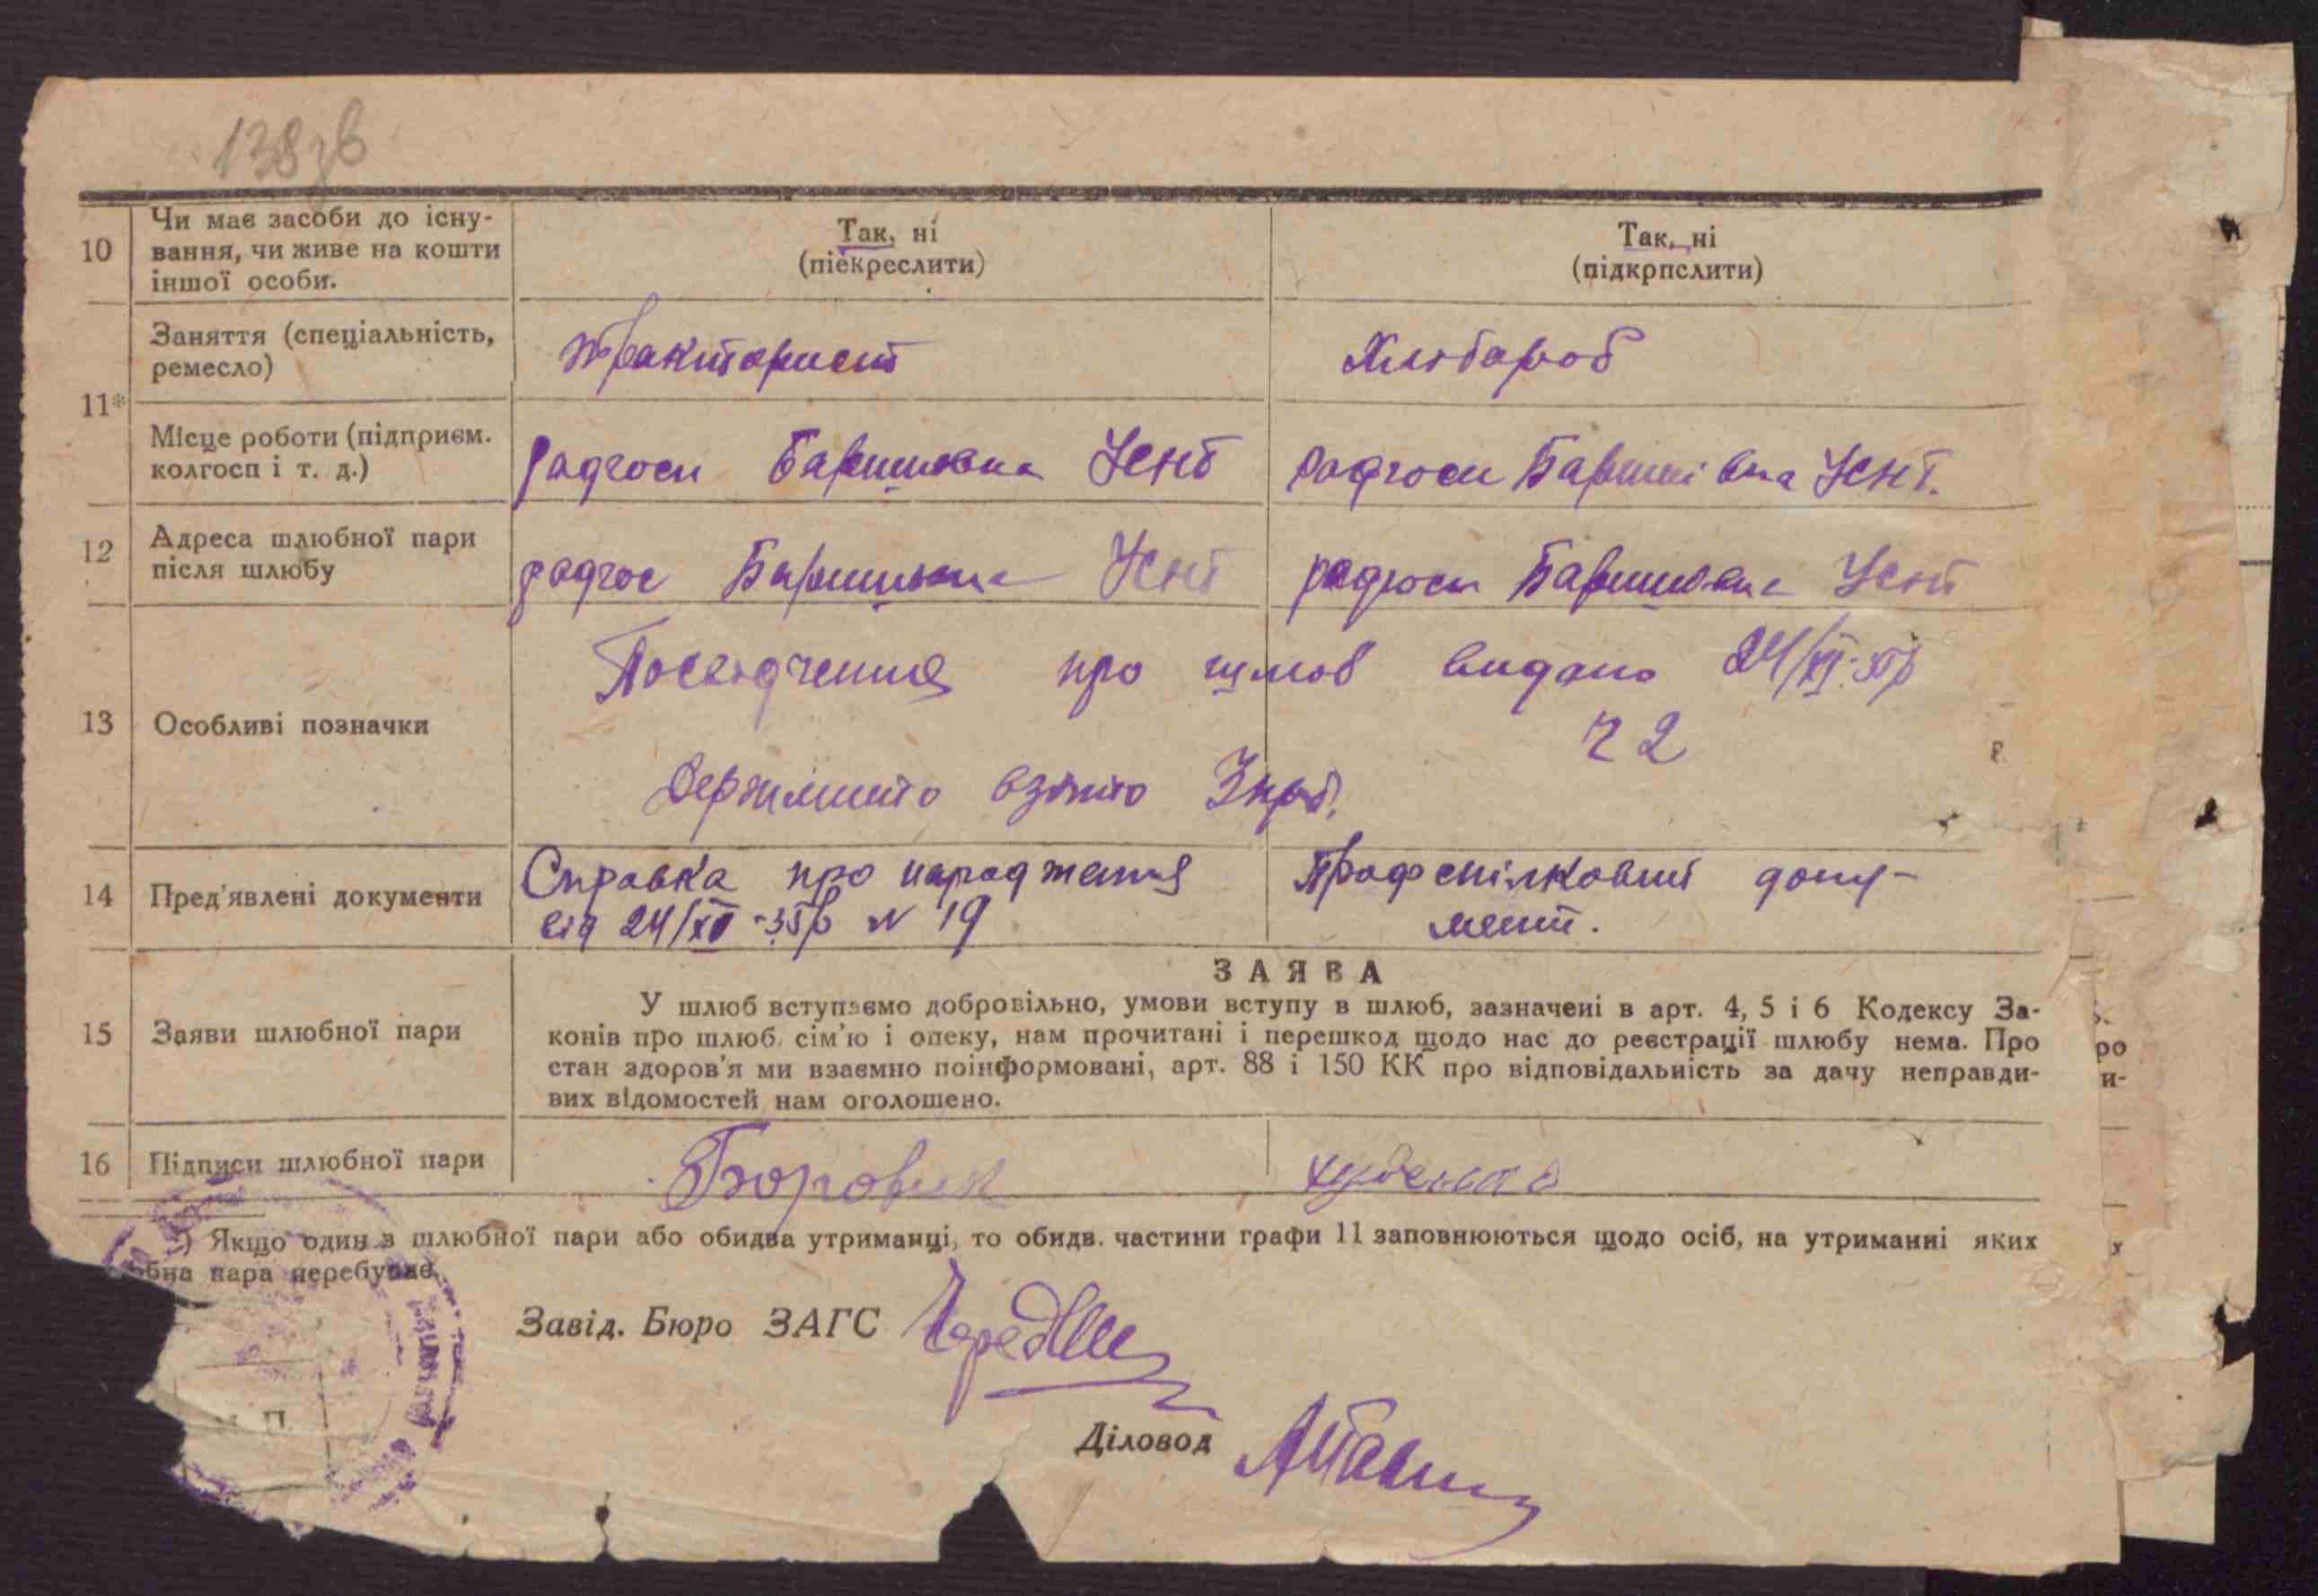 138зв
10
Чи має засоби до існу-
вання, чи живе на кошти
іншої особи.
Так, ні
(піекреслити)
Так, ні
(підкрпслити)
11*
Заняття (спеціальність,
ремесло)
тракторист
Хлібароб
Місце роботи (підприєм.
колгосп і т. д.)
радгосп Баришовка
радгосп Баришівка
12
Адреса шлюбної пари
після шлюбу
радгос Баришовка
радгосп Баришовка
13
Особливі позначки
Посвідчення про шлюб видано 24/XII-35р
ч 2
Держмито взято 3 крб.
14
Пред'явлені документи
Справка про народження
від 24/XII-35р N 19
Профспілковий доку-
мент.
15
Заяви шлюбної пари
ЗАЯВА
У шлюб вступаємо добровільно, умови вступу в шлюб, зазначені в арт. 4, 5 і 6 Кодексу За-
конів про шлюб, сім'ю і опеку, нам прочитані і перешкод щодо нас до реєстрації шлюбу нема. Про
стан здоров'я ми взаємно поінформовані, арт. 88 і 150 КК про відповідальність за дачу неправди-
вих відомостей нам оголошено.
16
Підписи шлюбної пари
Боровик
*) Якщо один з шлюбної пари або обидва утриманці, то обидв. частини графи 11 заповнюються щодо осіб, на утриманні яких
пара перебуває.
Завід. Бюро ЗАГС
М. П.
Діловод